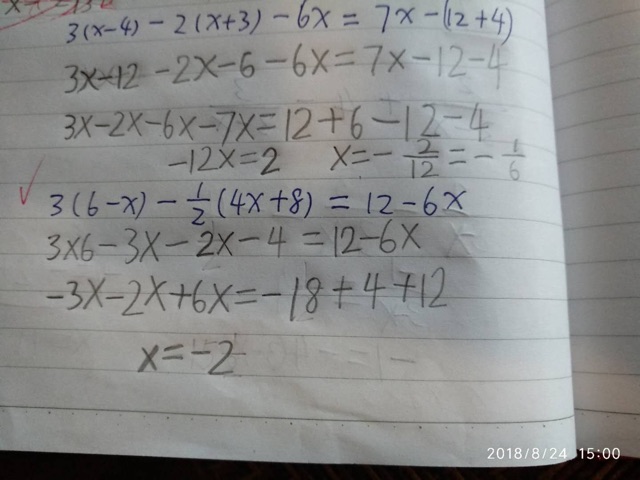 3(x-4)-2(x+3)-6x=7x-(12+4)
3x-12-2x-6-6x=7x-12-4
3x-2x-6x-7x=12+6-12-4
-12x=2 x=-2/12=-1/6
3(6-x)-1/2(4x+8)=12-6x
3x6-3x-2x-4=12-6x
-3x-2x+6x=-18+4+12
x=-2
2018/8/24 15:00